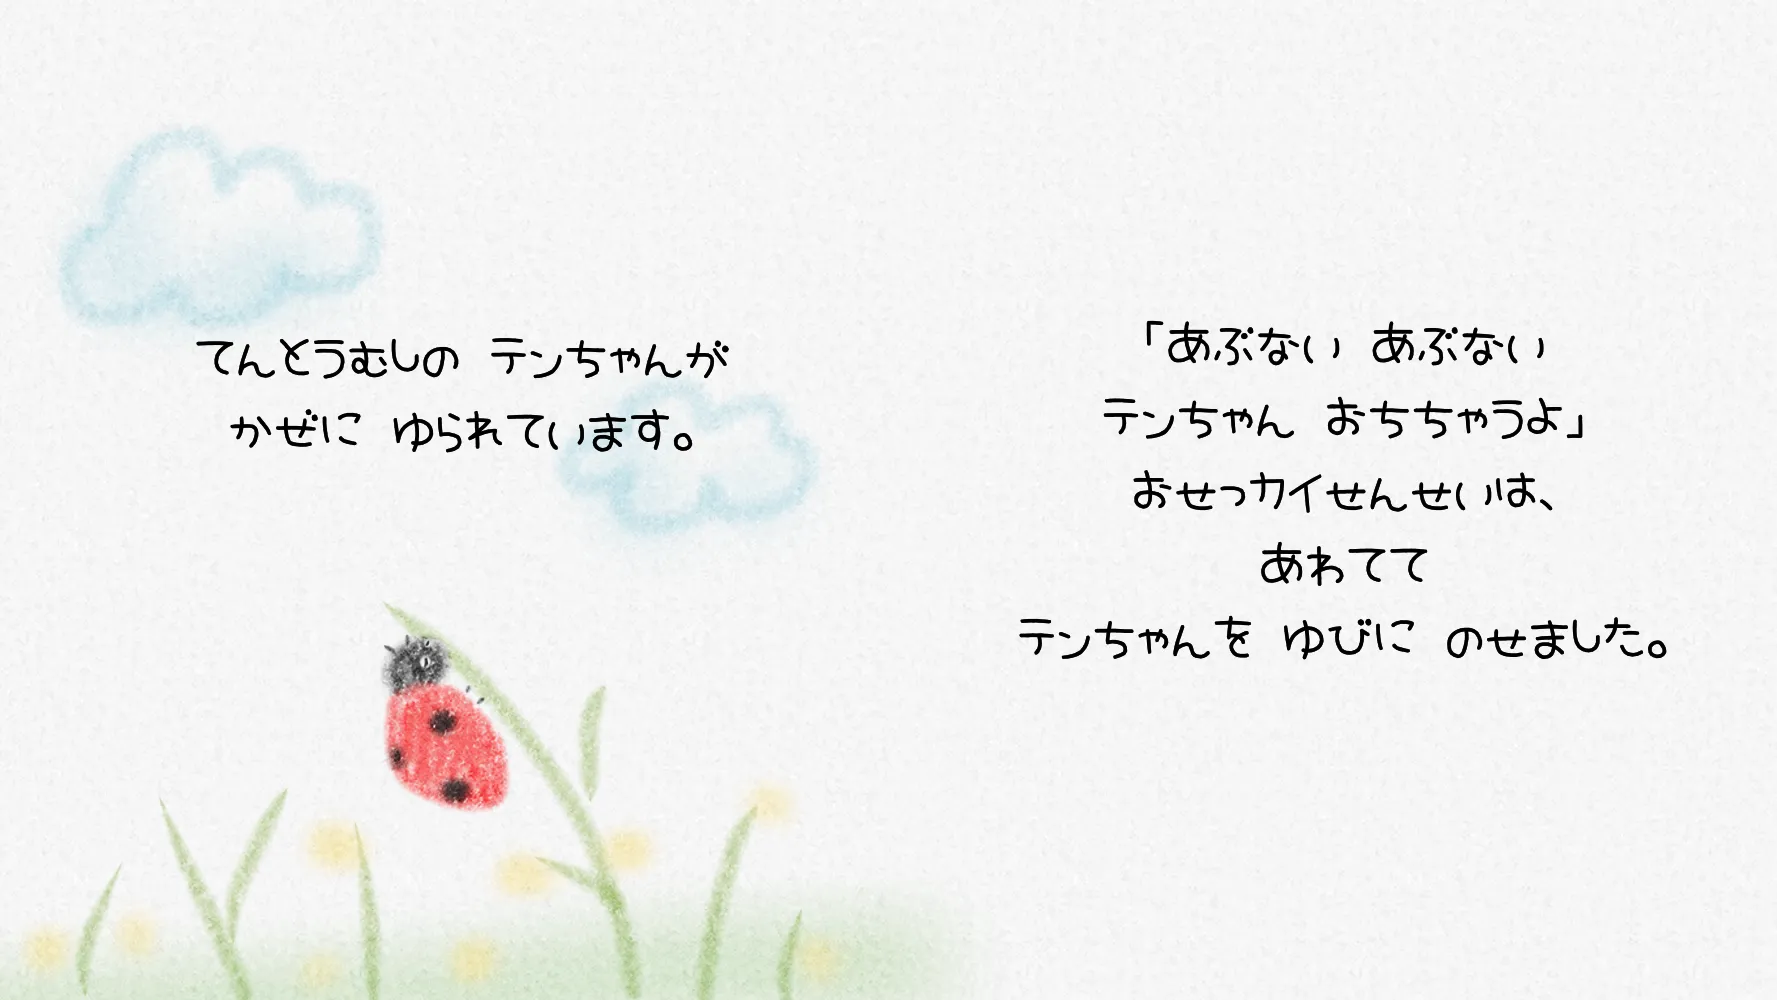 てんとうむしの テンちゃんが
かぜに ゆられています。
「あぶない あぶない
テンちゃん おちちゃうよ」
おせっカイせんせいは、
あわてて
テンちゃんを ゆびに のせました。